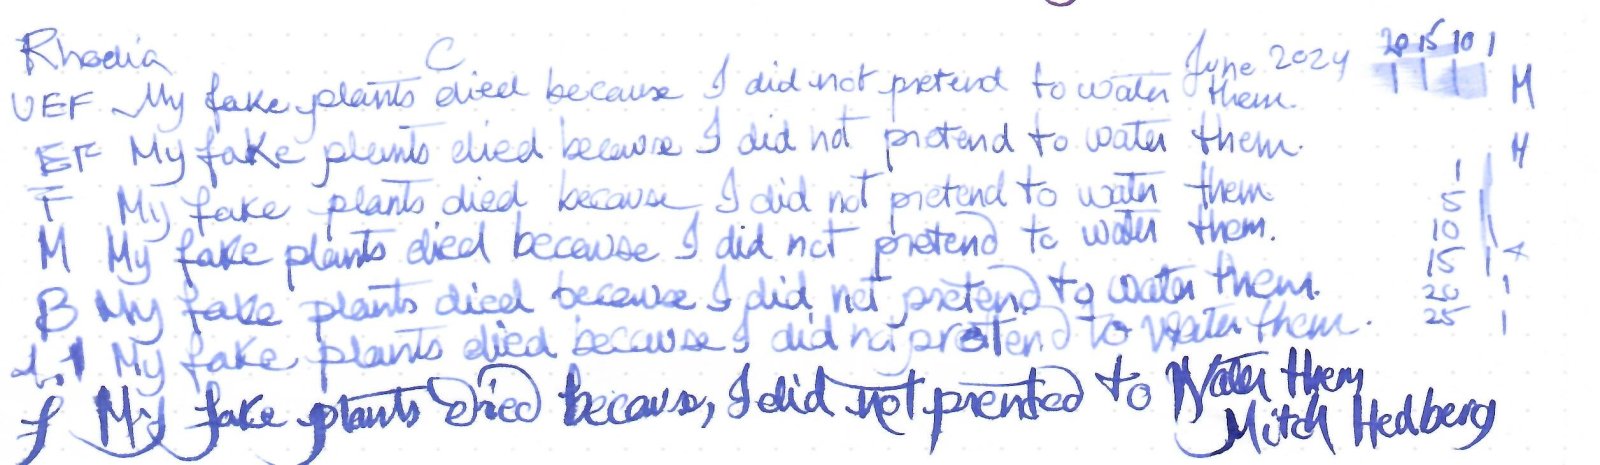 Rhodia C June 2024 20 15 10 1
UEF My fake plants died because I did not pretend to water them. M
EF My fake plants died because I did not pretend to water them. M
F My fake plants died because I did not pretend to water them 1 5
M My fake plants died because I did not pretend to water them. 10 15
B My fake plants died because I did not pretend to water them. 20
1.1 My fake plants died because I did not pretend to Water them. 25
f My fake plants dried because, I did not prented to Water them
Mitch Hedberg